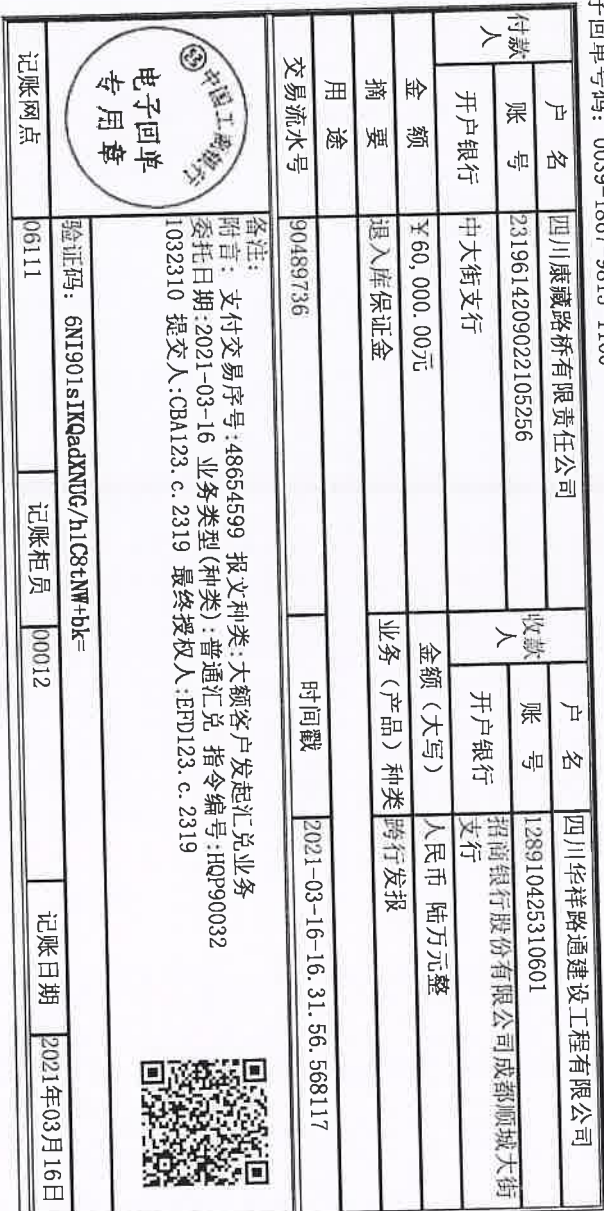 子回单号码: 0039-1807-9815-1106
付款人
户 名 四川康藏路桥有限责任公司
账 号 2319614209022105256
开户银行 中大街支行
收款人
户 名 四川华祥路通建设工程有限公司
账 号 128910425310601
开户银行 招商银行股份有限公司成都顺城大街
支行
金 额 ¥60,000.00元
金额（大写） 人民币 陆万元整
摘 要 退入库保证金
业务（产品）种类 跨行发报
用 途
交易流水号 90489736
时间戳 2021-03-16-16.31.56.568117
中国工商银行
电子回单
专用章
备注:
附言: 支付交易序号:48654599 报文种类:大额客户发起汇兑业务
委托日期:2021-03-16 业务类型(种类):普通汇兑 指令编号:HQP90032
1032310 提交人:CBA123.c.2319 最终授权人:EFD123.c.2319
验证码: 6NI901sIKQadXNUG/h1C8tNW+bk=
记账网点 06111
记账柜员 00012
记账日期 2021年03月16日